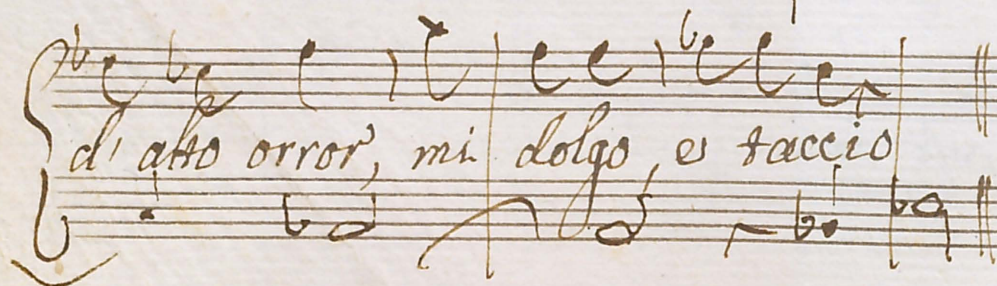 d'alto orror, mi dolgo, e taccio